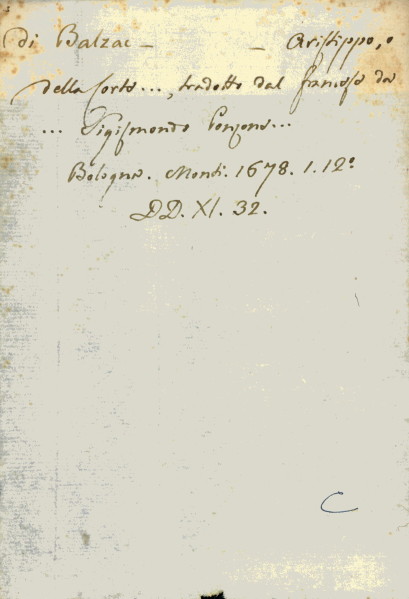 di Balzac - - Aristippo, o
della Corte ..., tradotto dal francese da
... Sigismondo Ponzone ...
Bologna. Monti. 1678. 1. 12°
DD. XI. 32.
C